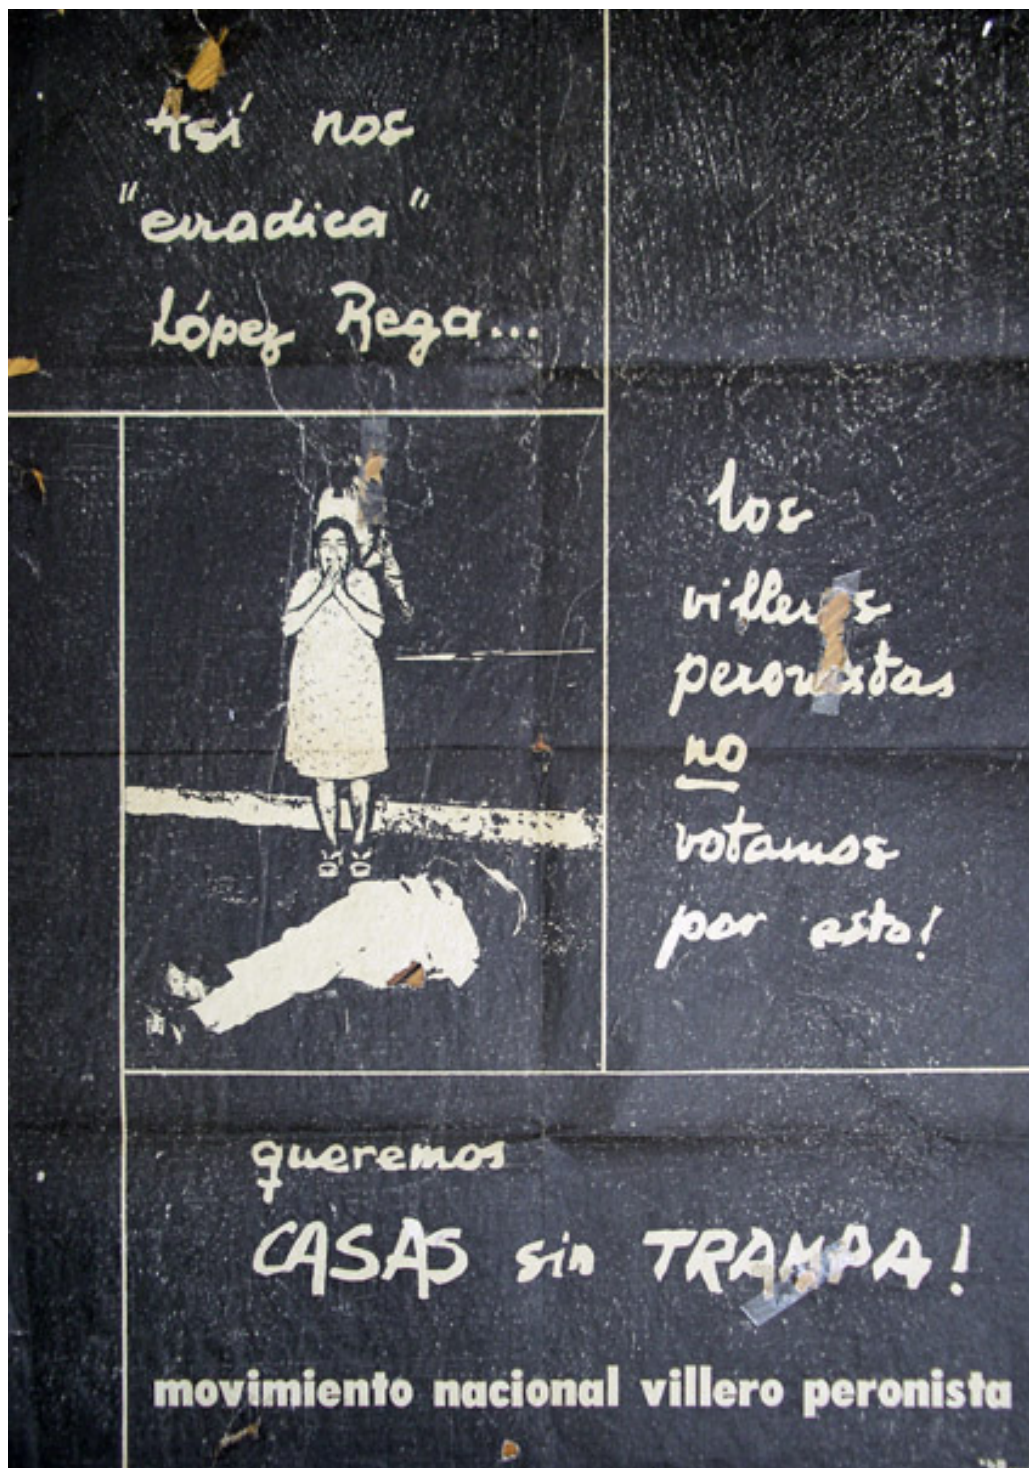 Así nos
"erradica"
López Rega...
los
villeros
peronistas
no
votamos
por esto!
queremos
CASAS sin TRAMPA!
movimiento nacional villero peronista